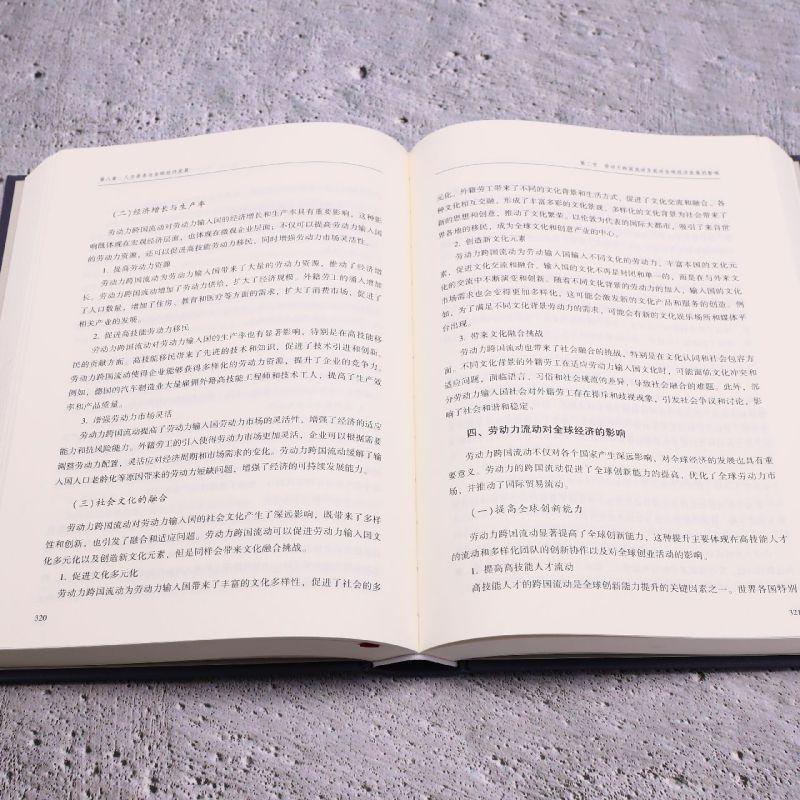 第八章 人力资本与全球经济发展
（二）经济增长与生产率
劳动力跨国流动对劳动力输入国的经济增长和生产率具有重要影响，这种影
响既体现在宏观经济层面，也体现在微观企业层面；不仅可以提高劳动力输入国
的劳动力资源，还可以促进高技能劳动力移民，同时增强劳动力市场灵活性。
1. 提高劳动力资源
劳动力跨国流动为劳动力输入国带来了大量的劳动力资源，推动了经济增
长。劳动力跨国流动增加了劳动力供给，扩大了经济规模。外籍劳工的涌入增加
了人口数量，增加了住房、教育和医疗等方面的需求，扩大了消费市场，促进了
相关产业的发展。
2. 促进高技能劳动力移民
劳动力跨国流动对劳动力输入国的生产率也有显著影响，特别是在高技能移
民的贡献方面。高技能移民带来了先进的技术和知识，促进了技术引进和创新。
劳动力跨国流动使得企业能够获得多样化的劳动力资源，提升了企业的竞争力。
例如，德国的汽车制造业大量雇佣外籍高技能工程师和技术工人，提高了生产效
率和产品质量。
3. 增强劳动力市场灵活
劳动力跨国流动提高了劳动力输入国劳动力市场的灵活性，增强了经济的适应
能力和抗风险能力。外籍劳工的引入使得劳动力市场更加灵活，企业可以根据需要
调整劳动力配置，灵活应对经济周期和市场需求的变化。劳动力跨国流动缓解了输
入国人口老龄化等原因带来的劳动力短缺问题，增强了经济的可持续发展能力。
（三）社会文化的融合
劳动力跨国流动对劳动力输入国的社会文化产生了深远影响，既带来了多样
性和创新，也引发了融合和适应问题。劳动力跨国流动可以促进劳动力输入国文
化多元化以及创造新文化元素，但是同样会带来文化融合挑战。
1. 促进文化多元化
劳动力跨国流动为劳动力输入国带来了丰富的文化多样性，促进了社会的多
320
第二节 劳动力跨国流动及其对全球经济发展的影响
元化。外籍劳工带来了不同的文化背景和生活方式，促进了文化交流和融合。各
种文化相互交融，形成了丰富多彩的文化景观。多样化的文化背景为社会带来了
新的思想和创意，推动了文化繁荣。以伦敦为代表的国际大都市，吸引了来自世
界各地的移民，成为全球文化和创意产业的中心。
2. 创造新文化元素
劳动力跨国流动为劳动力输入国输入不同文化的劳动力，丰富本国的文化元
素，促进文化交流和融合。输入国的文化不再是封闭和单一的，而是在与外来文
化的交流中不断演变和创新。随着不同文化背景劳动力的加入，输入国的文化
市场需求也会变得更加多样化，这可能会激发新的文化产品和服务的创造。例
如，为了满足不同文化背景劳动力的需求，可能会有新的文化娱乐场所和媒体平
台出现。
3. 带来文化融合挑战
劳动力跨国流动也带来了社会融合的挑战，特别是在文化认同和社会包容方
面。不同文化背景的外籍劳工在适应劳动力输入国文化时，可能面临文化冲突和
适应问题，面临语言、习俗和社会规范的差异，导致社会融合的难题。此外，部
分劳动力输入国社会对外籍劳工存在排斥和歧视现象，引发社会争议和讨论，影
响了社会和谐和稳定。
四、劳动力流动对全球经济的影响
劳动力跨国流动不仅对各个国家产生深远影响，对全球经济的发展也具有重
要意义。劳动力的跨国流动促进了全球创新能力的提高、优化了全球劳动力市
场，并推动了国际贸易流动。
（一）提高全球创新能力
劳动力跨国流动显著提高了全球创新能力，这种提升主要体现在高技能人才
的流动和多样化团队的创新协作以及对全球创业活动的影响。
1. 提高高技能人才流动
高技能人才的跨国流动是全球创新能力提升的关键因素之一。世界各国特别
321